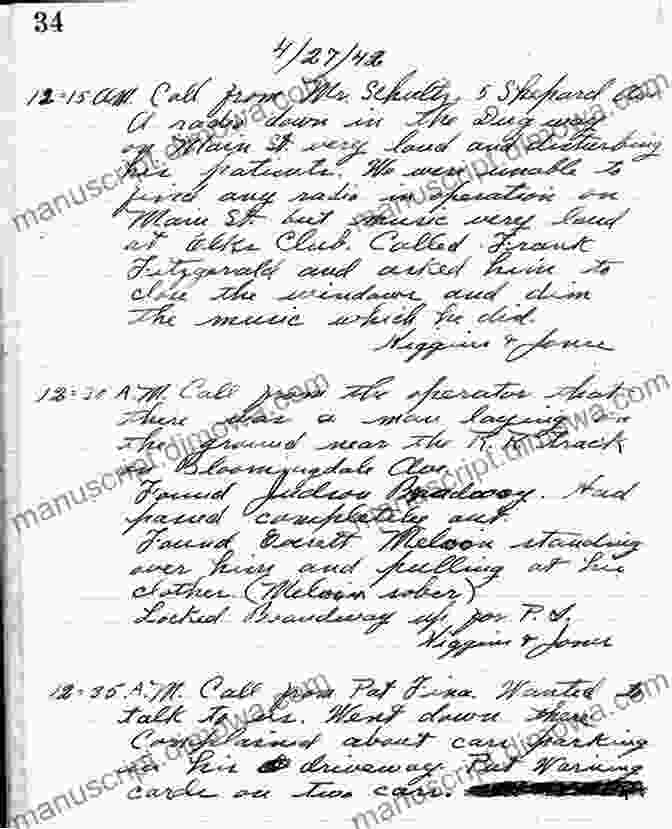 34
4/27/42
12=15 A.M. Call from Mr. Schultz, 5 Shepard Ave
A radio down in the Dug way
on Main St. very loud and disturbing
his patients. We were unable to
find any radio in operation on
Main St. but music very loud
at Elks Club. Called Frank
Fitzgerald and asked him to
close the windows and dim
the music which he did.
Higgins & Jones
12=30 A.M. Call from the operator that
there was a man laying on
the ground near the R.R. track
on Bloomingdale Ave.
Found Judson Broadway. Had
passed completely out.
Found Everett Meloon standing
over him and pulling at his
clothes. (Meloon sober)
Locked Broadway up for P.I.
Higgins & Jones
12=35 A.M. Call from Pat Fina. Wanted to
talk to us. Went down there
Complained about cars parking
in his driveway Put Warning
cards on two cars.
manuscript.dimowa.com
manuscript.dimowa.com
manuscript.dimowa.com
manuscript.dimowa.com
manuscript.dimowa.com
manuscript.dimowa.com